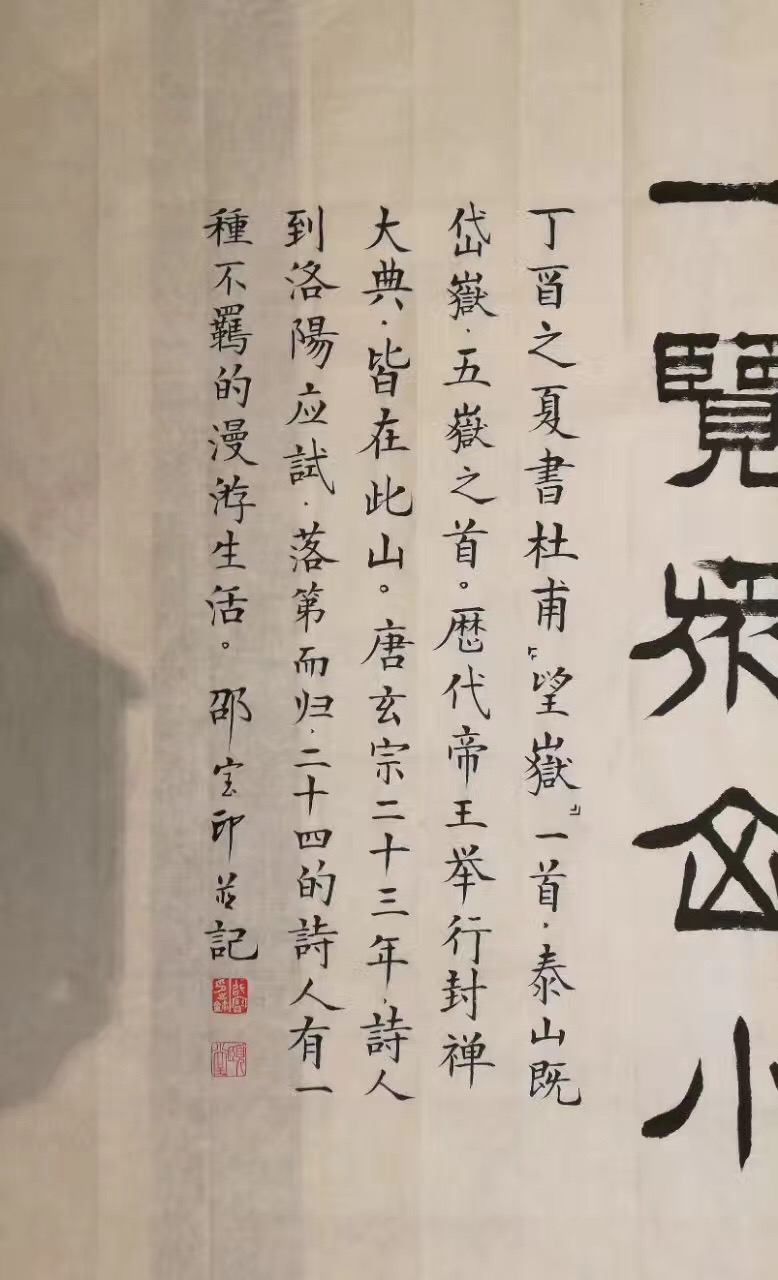 一覽眾山小
丁酉之夏書杜甫『望嶽』一首，泰山既
岱嶽，五嶽之首。歴代帝王举行封禅
大典，皆在此山。唐玄宗二十三年，詩人
到洛陽应試，落第而归，二十四的詩人有一
種不羈的漫游生活。邵宝印並記